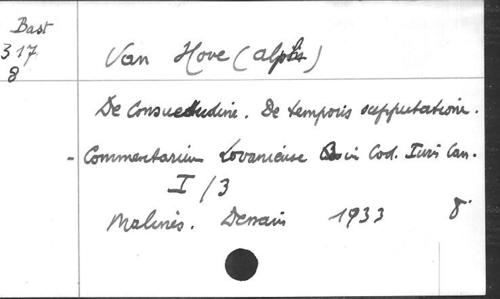 Bast
317
8
Van Hove (Alphs)
De Consuetudine. De temporis supputatione.
- Commentarium Lovaniense in Cod. Iuris Can.
I/3
Malines. Dessain 1933 8°